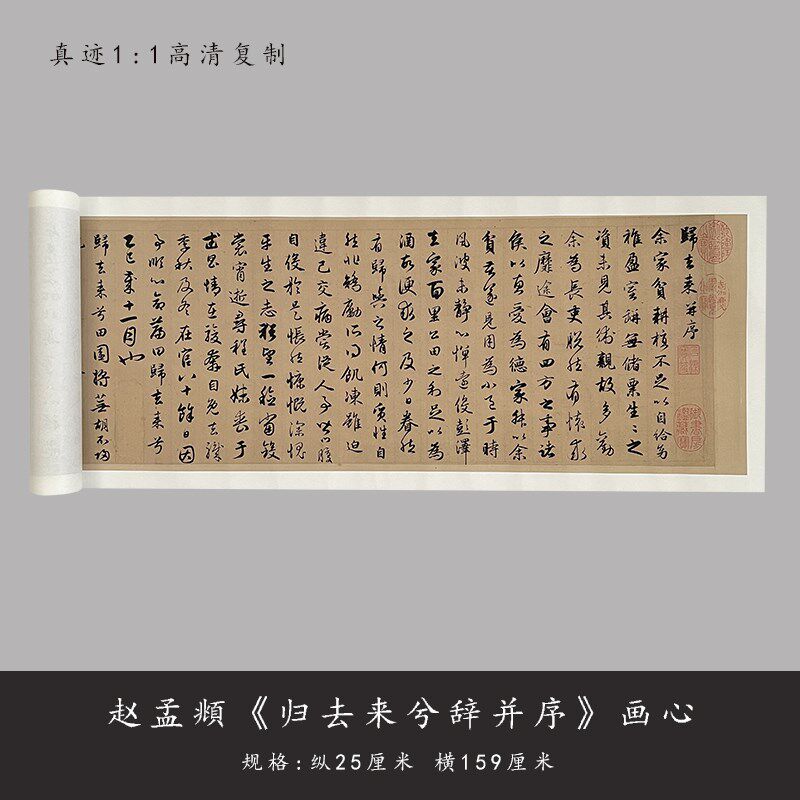 真迹1:1高清复制
歸去来并序
余家貧耕植不足以自給幼
稚盈室缾無儲粟生生之
資未見其術親故多勸
余為長吏脫然有懷求
之靡途會有四方之事諸
侯以惠愛為德家叔以余
貧苦遂見用為小邑于時
風波未靜心憚遠役彭澤
去家百里公田之利足以為
酒故便求之及少日眷然
有歸與之情何則質性自
然非矯勵所得飢凍雖迫
違己交病嘗從人事皆口腹
自役於是悵然慷慨深愧
平生之志猶望一稔當斂
裳宵逝尋程氏妹喪于
武昌情在駿奔自免去職
季秋及冬在官八十餘日因
事順心命篇曰歸去来兮
乙巳歲十一月也
歸去来兮田園將蕪胡不歸
赵孟頫《归去来兮辞并序》画心
规格:纵25厘米 横159厘米